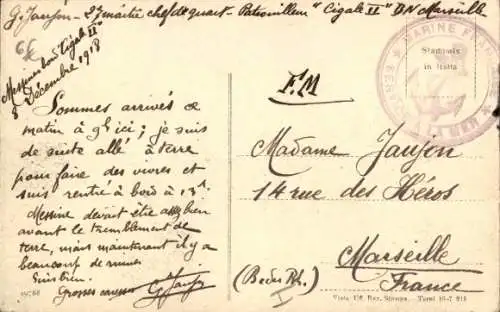 G. Jaujon - 2d maître chef de quart - Patrouilleur "Cigale II" BN Marseille
Messine bord "Cigale II"
8 Décembre 1918
Sommes arrivés ce
matin à 9h ici; je suis
de suite allé à terre
pour faire des vivres et
suis rentré à bord à 13h
Messine devait être assez bien
avant le tremblement de
terre, mais maintenant il y a
beaucoup de ruines
Suis bien.
Grosses caresses G Jaujon
F.M
Madame Jaujon
14 rue des Héros
Marseille
(Bches Rh.)
France
MARINE
Stadomis
in Italia